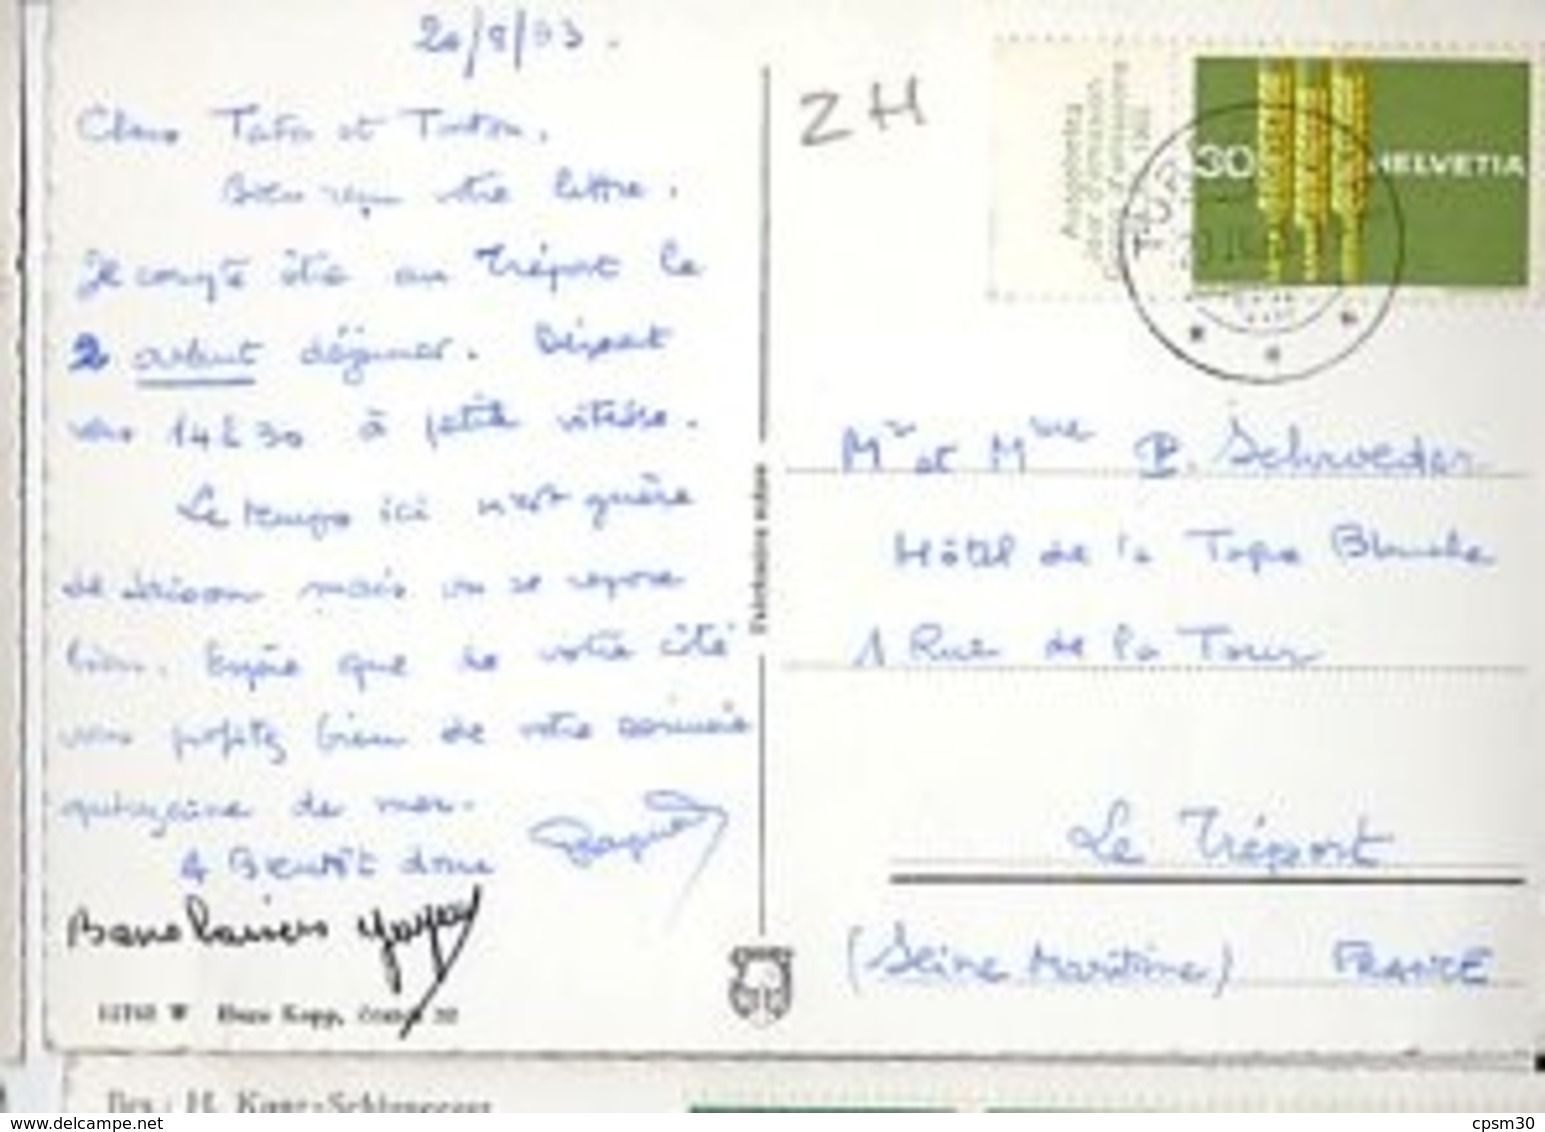 20/8/63.
Chers Tata et Tonton.
Bien reçu vtre lettre.
Je compte être au Tréport le
2 avant déjeuner. Départ
vers 14h30 à petite vitesse.
Le temps ici n'est guère
de saison mais on se repose
bien. Espère que de votre côté
vous profitez bien de votre dernière
quinzaine de mer.
A Bientôt donc
Bons baisers
W Hans Kopp,
ZH
Ausgabetag
Jour d'émission
30 HELVETIA
Mr et Mme P. Schroeder
Hôtel de la Tape Blanche
1 Rue de la Tour
Le Tréport
(Seine Maritime) FRANCE
www.delcampe.net
cpsm30